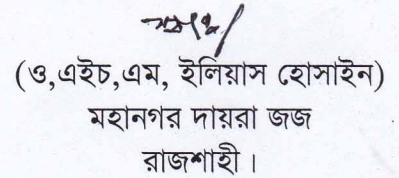 (ও,এইচ,এম, ইলিয়াস হোসাইন)
মহানগর দায়রা জজ
রাজশাহী।